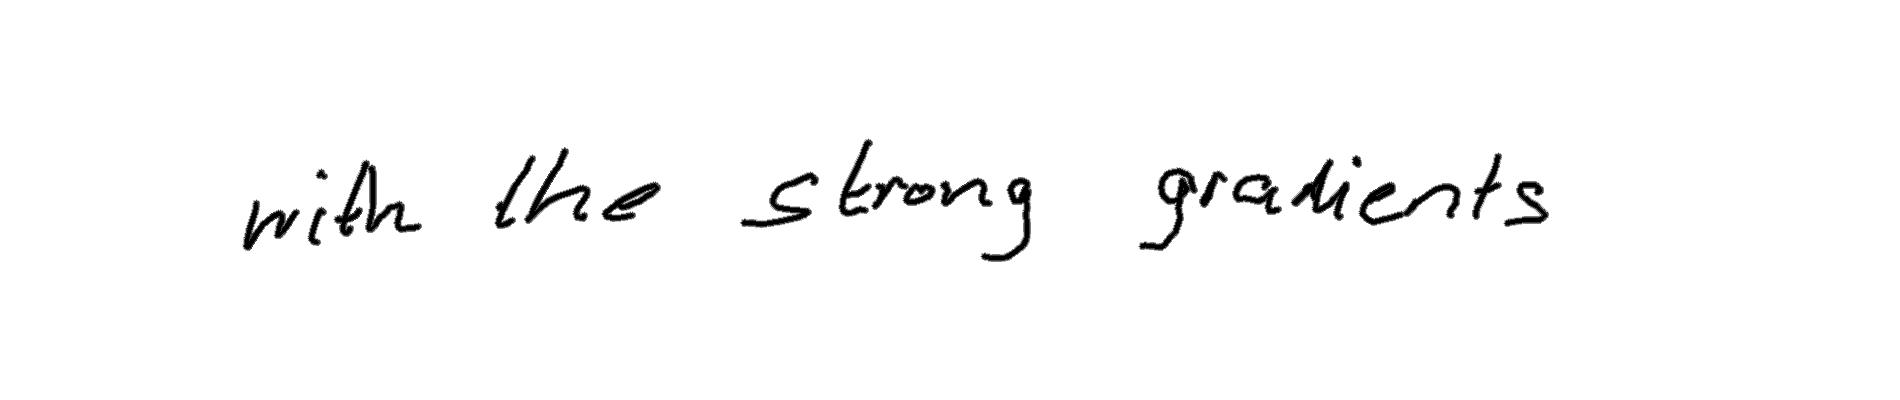 with the strong gradients